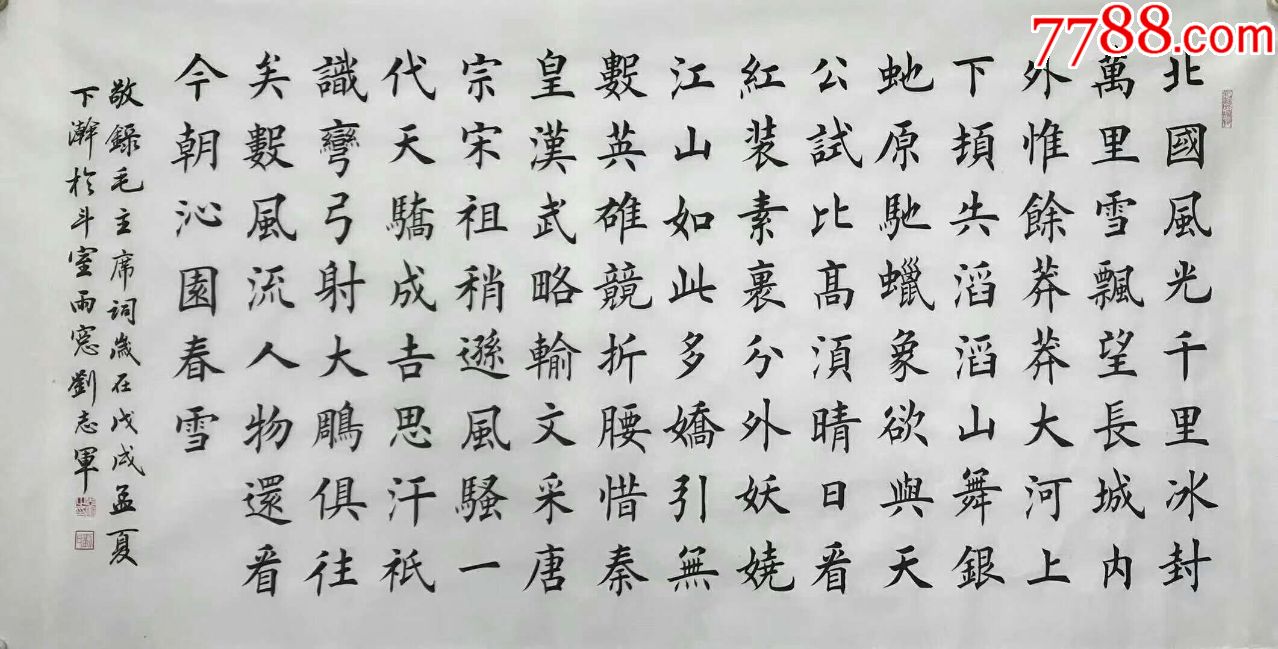 北國風光千里冰封
萬里雪飄望長城內
外惟餘莽莽大河上
下頓失滔滔山舞銀
蛇原馳蠟象欲與天
公試比高須晴日看
紅裝素裹分外妖嬈
江山如此多嬌引無
數英雄競折腰惜秦
皇漢武略輸文采唐
宗宋祖稍遜風騷一
代天驕成吉思汗祇
識彎弓射大鵰俱往
矣數風流人物還看
今朝沁園春雪
敬錄毛主席詞歲在戊戌孟夏
下澣於斗室雨窓劉志軍
7788.com